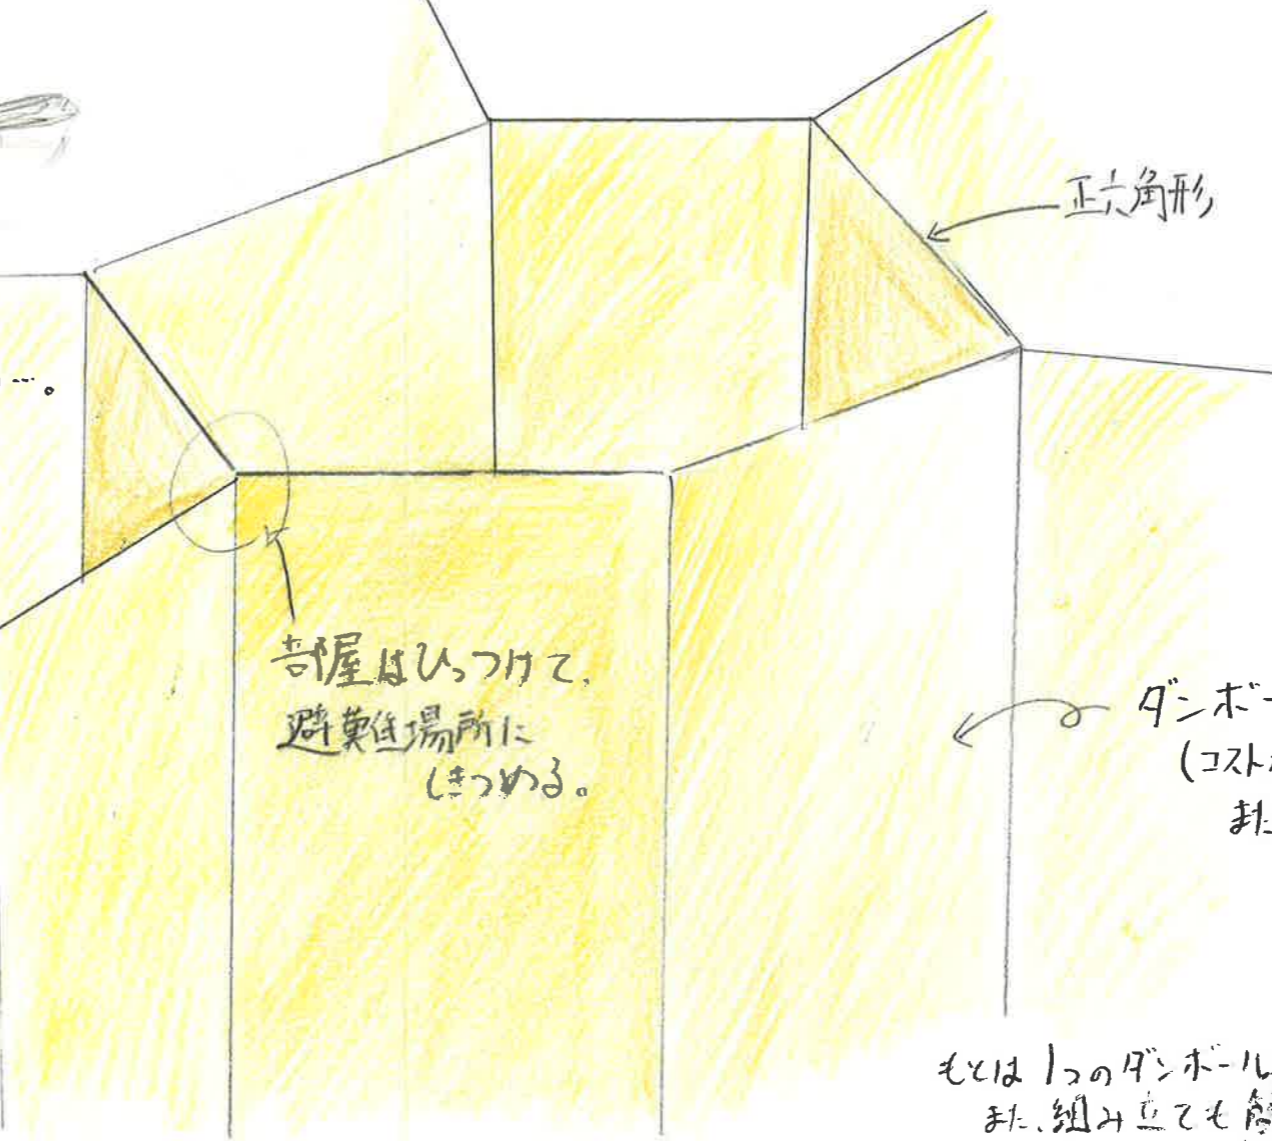 正六角形
…。
部屋はひっつけて、
避難場所に
しきつめる。
ダンボー
(コスト
また
もとは1つのダンボール
また、組み立ても